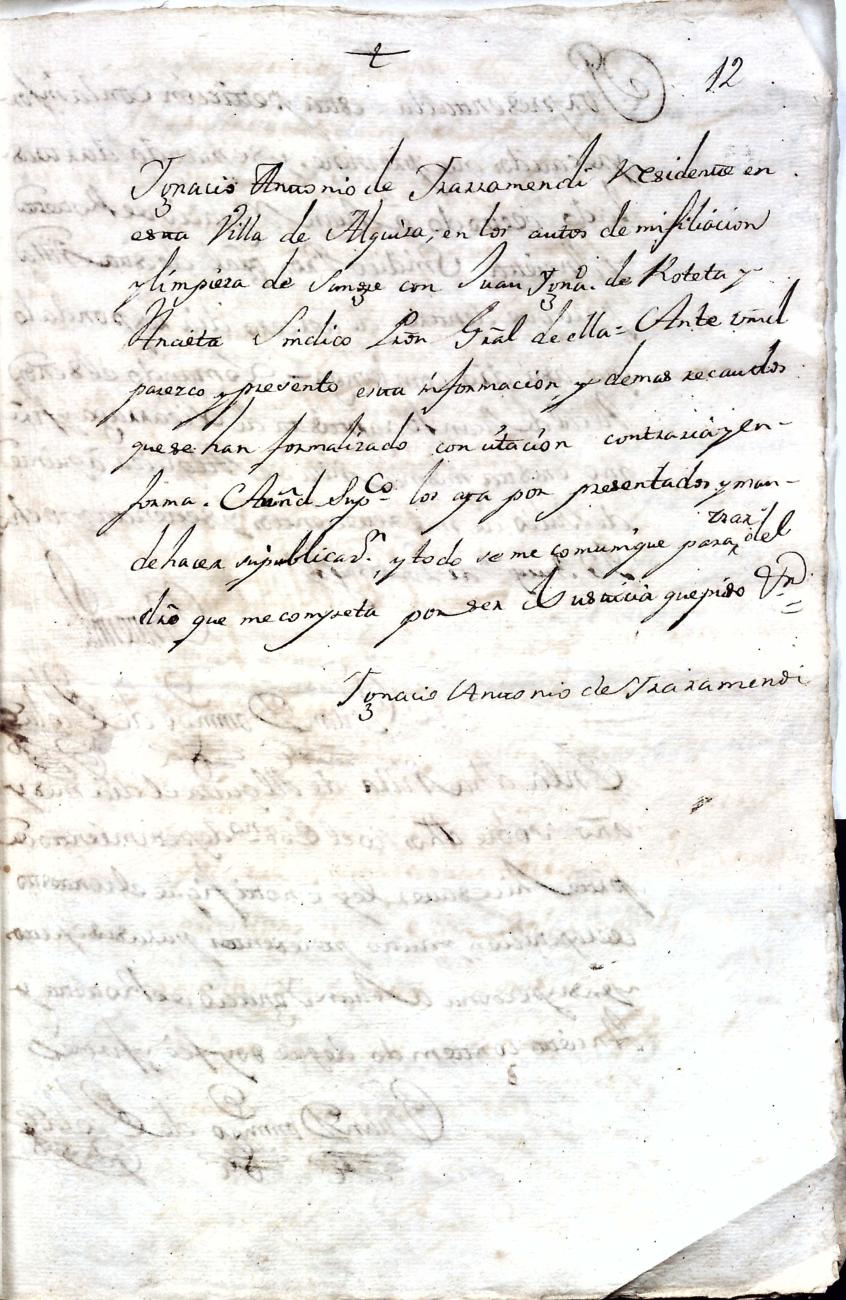 12
Ygnacio Antonio de Yrarramendi Residente en
esta Villa de Alquiza, en los autos de mi filiacion
y limpieza de sangre con Juan Ygnº. de Roteta y
Ancieta Sindico Prôr Gñal de ella = Ante vmd
parezco, y presento esta informacion, y demas recautdos
que se han formalizado con citacion contraria, y en
forma. A vmd Supcº los aya por presentados, y man-
de hacer su publicazn., y todo se me comunique para usar del
dro que me competa por ser Justicia que pido Vt
Ygnacio Antonio de Yrarramendi